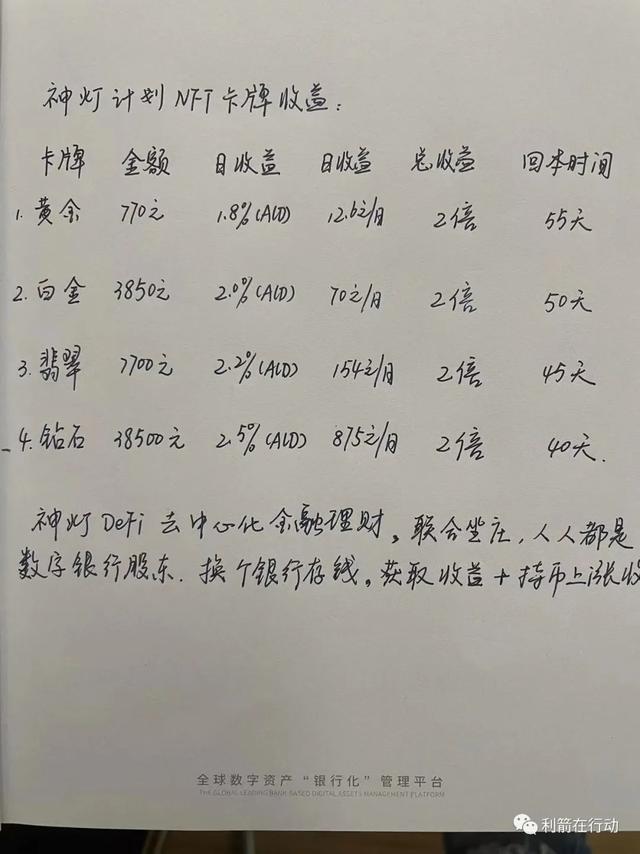 神灯计划NFT卡牌收益：
卡牌 金额 日收益 日收益 总收益 回本时间
1. 黄金 770元 1.8%(ALD) 12.6元/日 2倍 55天
2. 白金 3850元 2.0%(ALD) 70元/日 2倍 50天
3. 翡翠 7700元 2.2%(ALD) 154元/日 2倍 45天
4. 钻石 38500元 2.5%(ALD) 875元/日 2倍 40天.
神灯DeFi去中心化金融理财。联合坐庄，人人都是
数字银行股东. 换个银行存钱。获取收益+持币上涨收
全球数字资产“银行化”管理平台
THE GLOBAL LEADING BANK-BASED DIGITAL ASSETS MANAGEMENT PLATFORM
利箭在行动